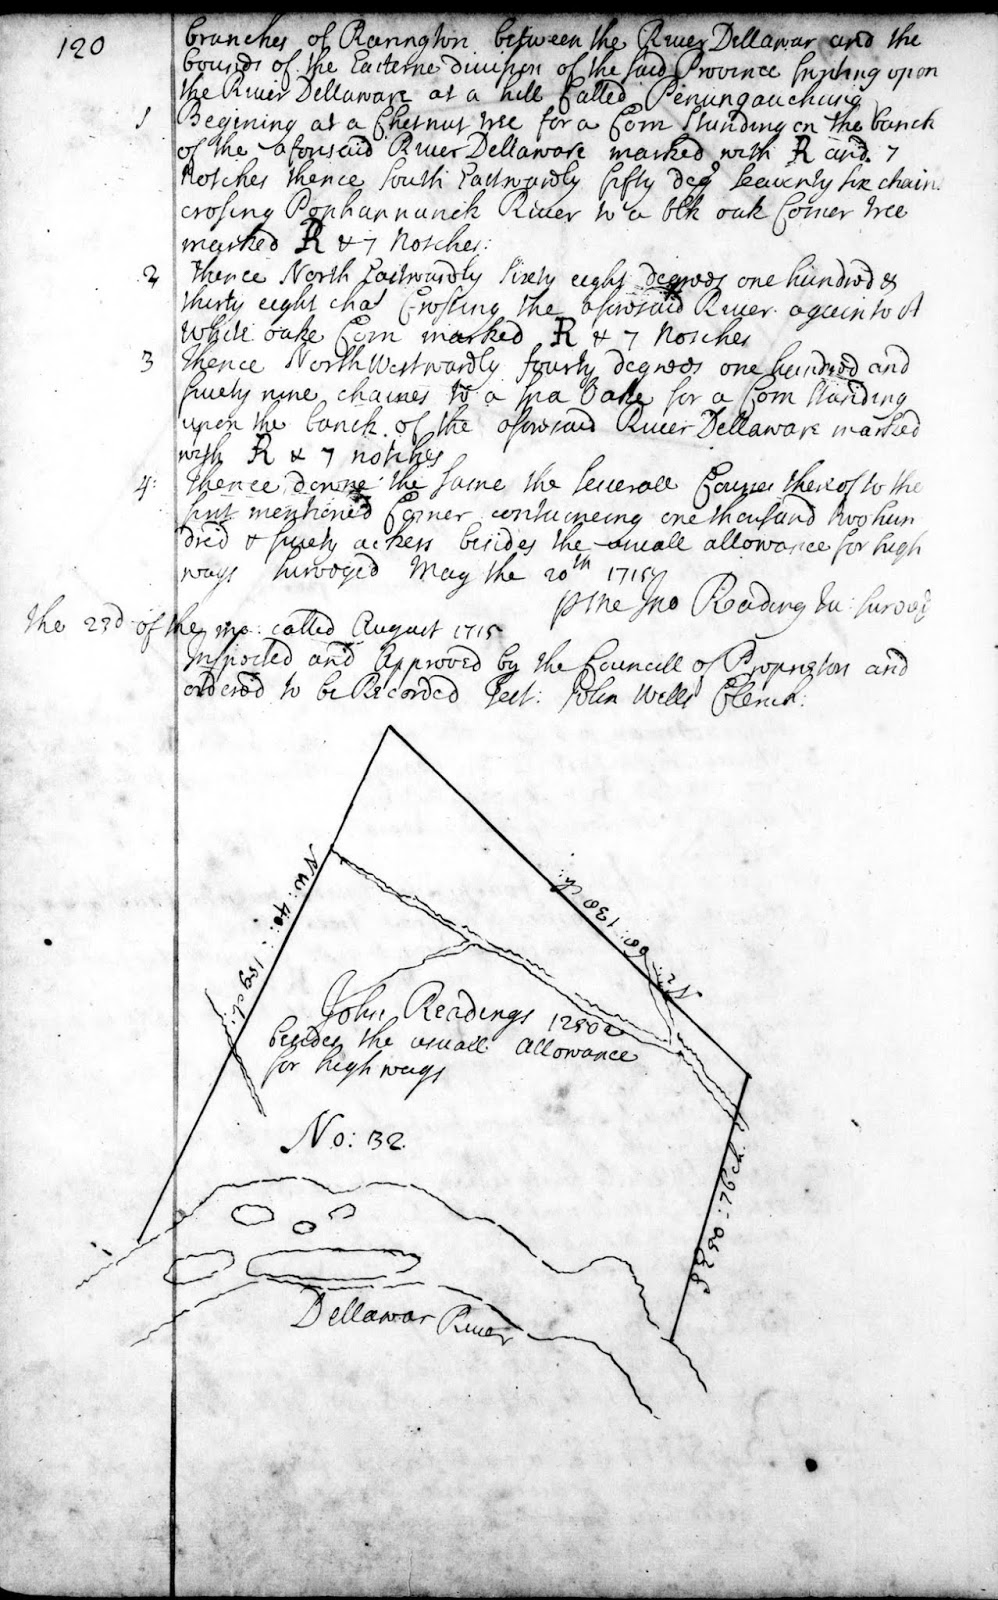 120
branches of Rarington between the River Dellawar and the
bounds of the Easterne division of the said Province fronting upon
the River Dellaware at a hill Called Penungauchung
1 Begining at a Chesnut tree for a Corn standing on the banck
of the aforesaid River Dellaware marked with R and 7
Notches thence South Eastwardly fifty deg seaventy six chains
crosing Pophannunck River to a blk oak Corner tree
marked R & 7 Notches:
2 thence North Eastwardly sixty eight degrees one hundred &
thirty eight cha Crossing the aforesaid River again to A
White oake Corn marked R & 7 Notches
3 thence North Westwardly fourty degrees one hundred and
fivety nine chaines to a Oake for a Corn standing
upon the banck of the aforesaid River Dellaware marked
with R & 7 notches
4: thence downe the same the severall Courses thereof to the
first mentioned Corner containeing one thousand two hun
dred & fivety ackers besides the usuall allowance for high
ways Surveyed May the 20th 1715
p me Jno Reading Ju: Survey
the 23d of the mo: called August 1715
Inspected and Approved by the Councill of Proprietors and
ordered to be Recorded Test: John Wells Clerck:
NW: 40: 159 ch:
NE: 60: 130 ch:
John Readings 1250a
besides the usuall allowance
for high ways
No: 132
SE 50: 76 ch:
Dellawar River